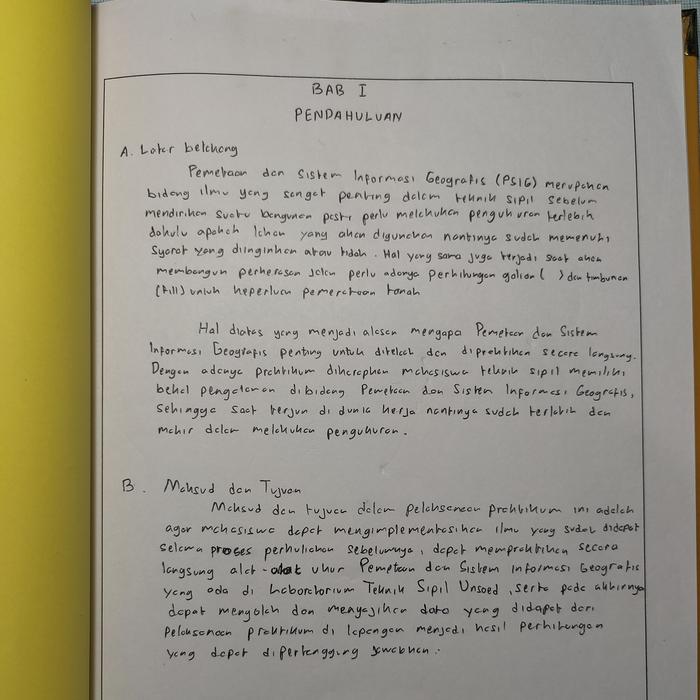 BAB I
PENDAHULUAN
A. Latar belakang
Pemetaan dan Sistem Informasi Geografis (PSIG) merupakan
bidang ilmu yang sangat penting dalam teknik sipil sebelum
mendirikan suatu bangunan pasti perlu melakukan pengukuran terlebih
dahulu apakah lahan yang akan digunakan nantinya sudah memenuhi
Syarat yang diinginkan atau tidak. Hal yang sama juga terjadi saat akan
membangun perkerasan jalan perlu adanya perhitungan galian ( ) dan timbunan
(fill) untuk keperluan pemerataan tanah
Hal diatas yang menjadi alasan mengapa Pemetaan dan Sistem
Informasi Geografis penting untuk ditelaah dan dipraktikan secara langsung.
Dengan adanya praktikum diharapkan mahasiswa teknik sipil memiliki
bekal pengetahuan dibidang Pemetaan dan Sistem Informasi Geografis,
sehingga saat terjun di dunia kerja nantinya sudah terlatih dan
mahir dalam melakukan pengukuran.
B. Maksud dan Tujuan
Maksud dan tujuan dalam pelaksanaan praktikum ini adalah
agar mahasiswa dapat mengimplementasikan ilmu yang sudah didapat
selama proses perkuliahan sebelumnya, dapat mempraktikan secara
langsung alat-alat ukur Pemetaan dan Sistem Informasi Geografis
yang ada di Laboratorium Teknik Sipil Unsoed, serta pada akhirnya
dapat mengolah dan menyajikan data yang didapat dari
pelaksanaan praktikum di lapangan menjadi hasil perhitungan
yang dapat dipertanggung jawabkan.